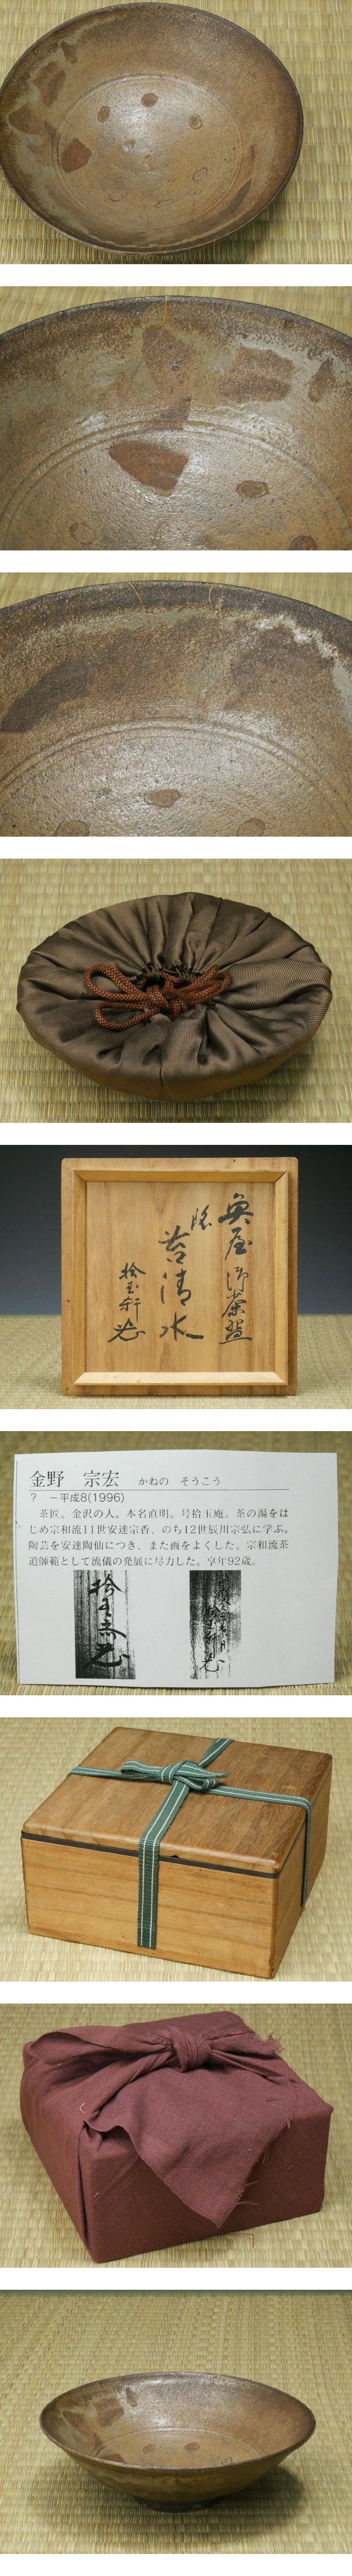 奥屋 御茶盌
銘
苔清水
拾玉軒
金野 宗宏 かねの そうこう
? −平成8(1996)
茶匠。金沢の人。本名直明。号拾玉庵。茶の湯をは
じめ宗和流11世安達宗香、のち12世辰川宗弘に学ぶ。
陶芸を安達陶仙につき、また画をよくした。宗和流茶
道師範として流儀の発展に尽力した。享年92歳。